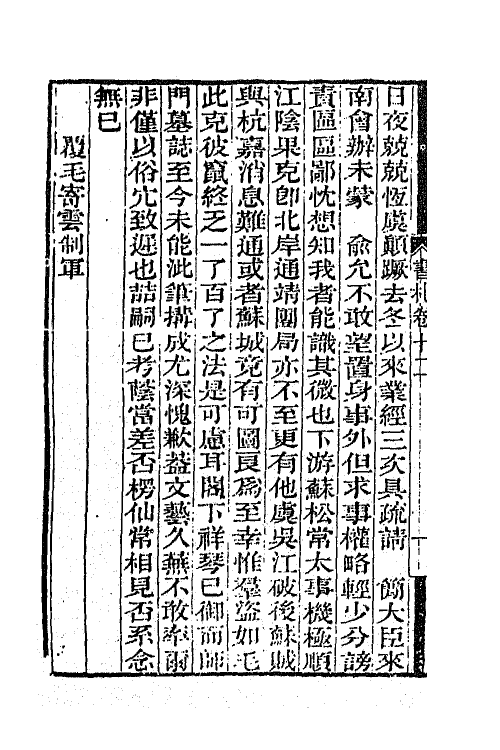 書札卷十二
日夜兢兢恆虞顛蹶去冬以來業經三次具疏請　簡大臣來
南會辦未蒙　俞允不敢望置身事外但求事權略輕少分謗
責區區鄙忱想知我者能識其微也下游蘇松常太事機極順
江陰果克卽北岸通靖團局亦不至更有他虞吳江破後蘇賊
與杭嘉消息難通或者蘇城竟有可圖良爲至幸惟羣盜如毛
此克彼竄終乏一了百了之法是可慮耳閣下祥琴已御而師
門墓誌至今未能泚筆搆成尤深愧歉蓋文藝久蕪不敢率爾
非僅以俗宂致遲也喆嗣已考蔭當差否楞仙常相見否系念
無已
覆毛寄雲制軍